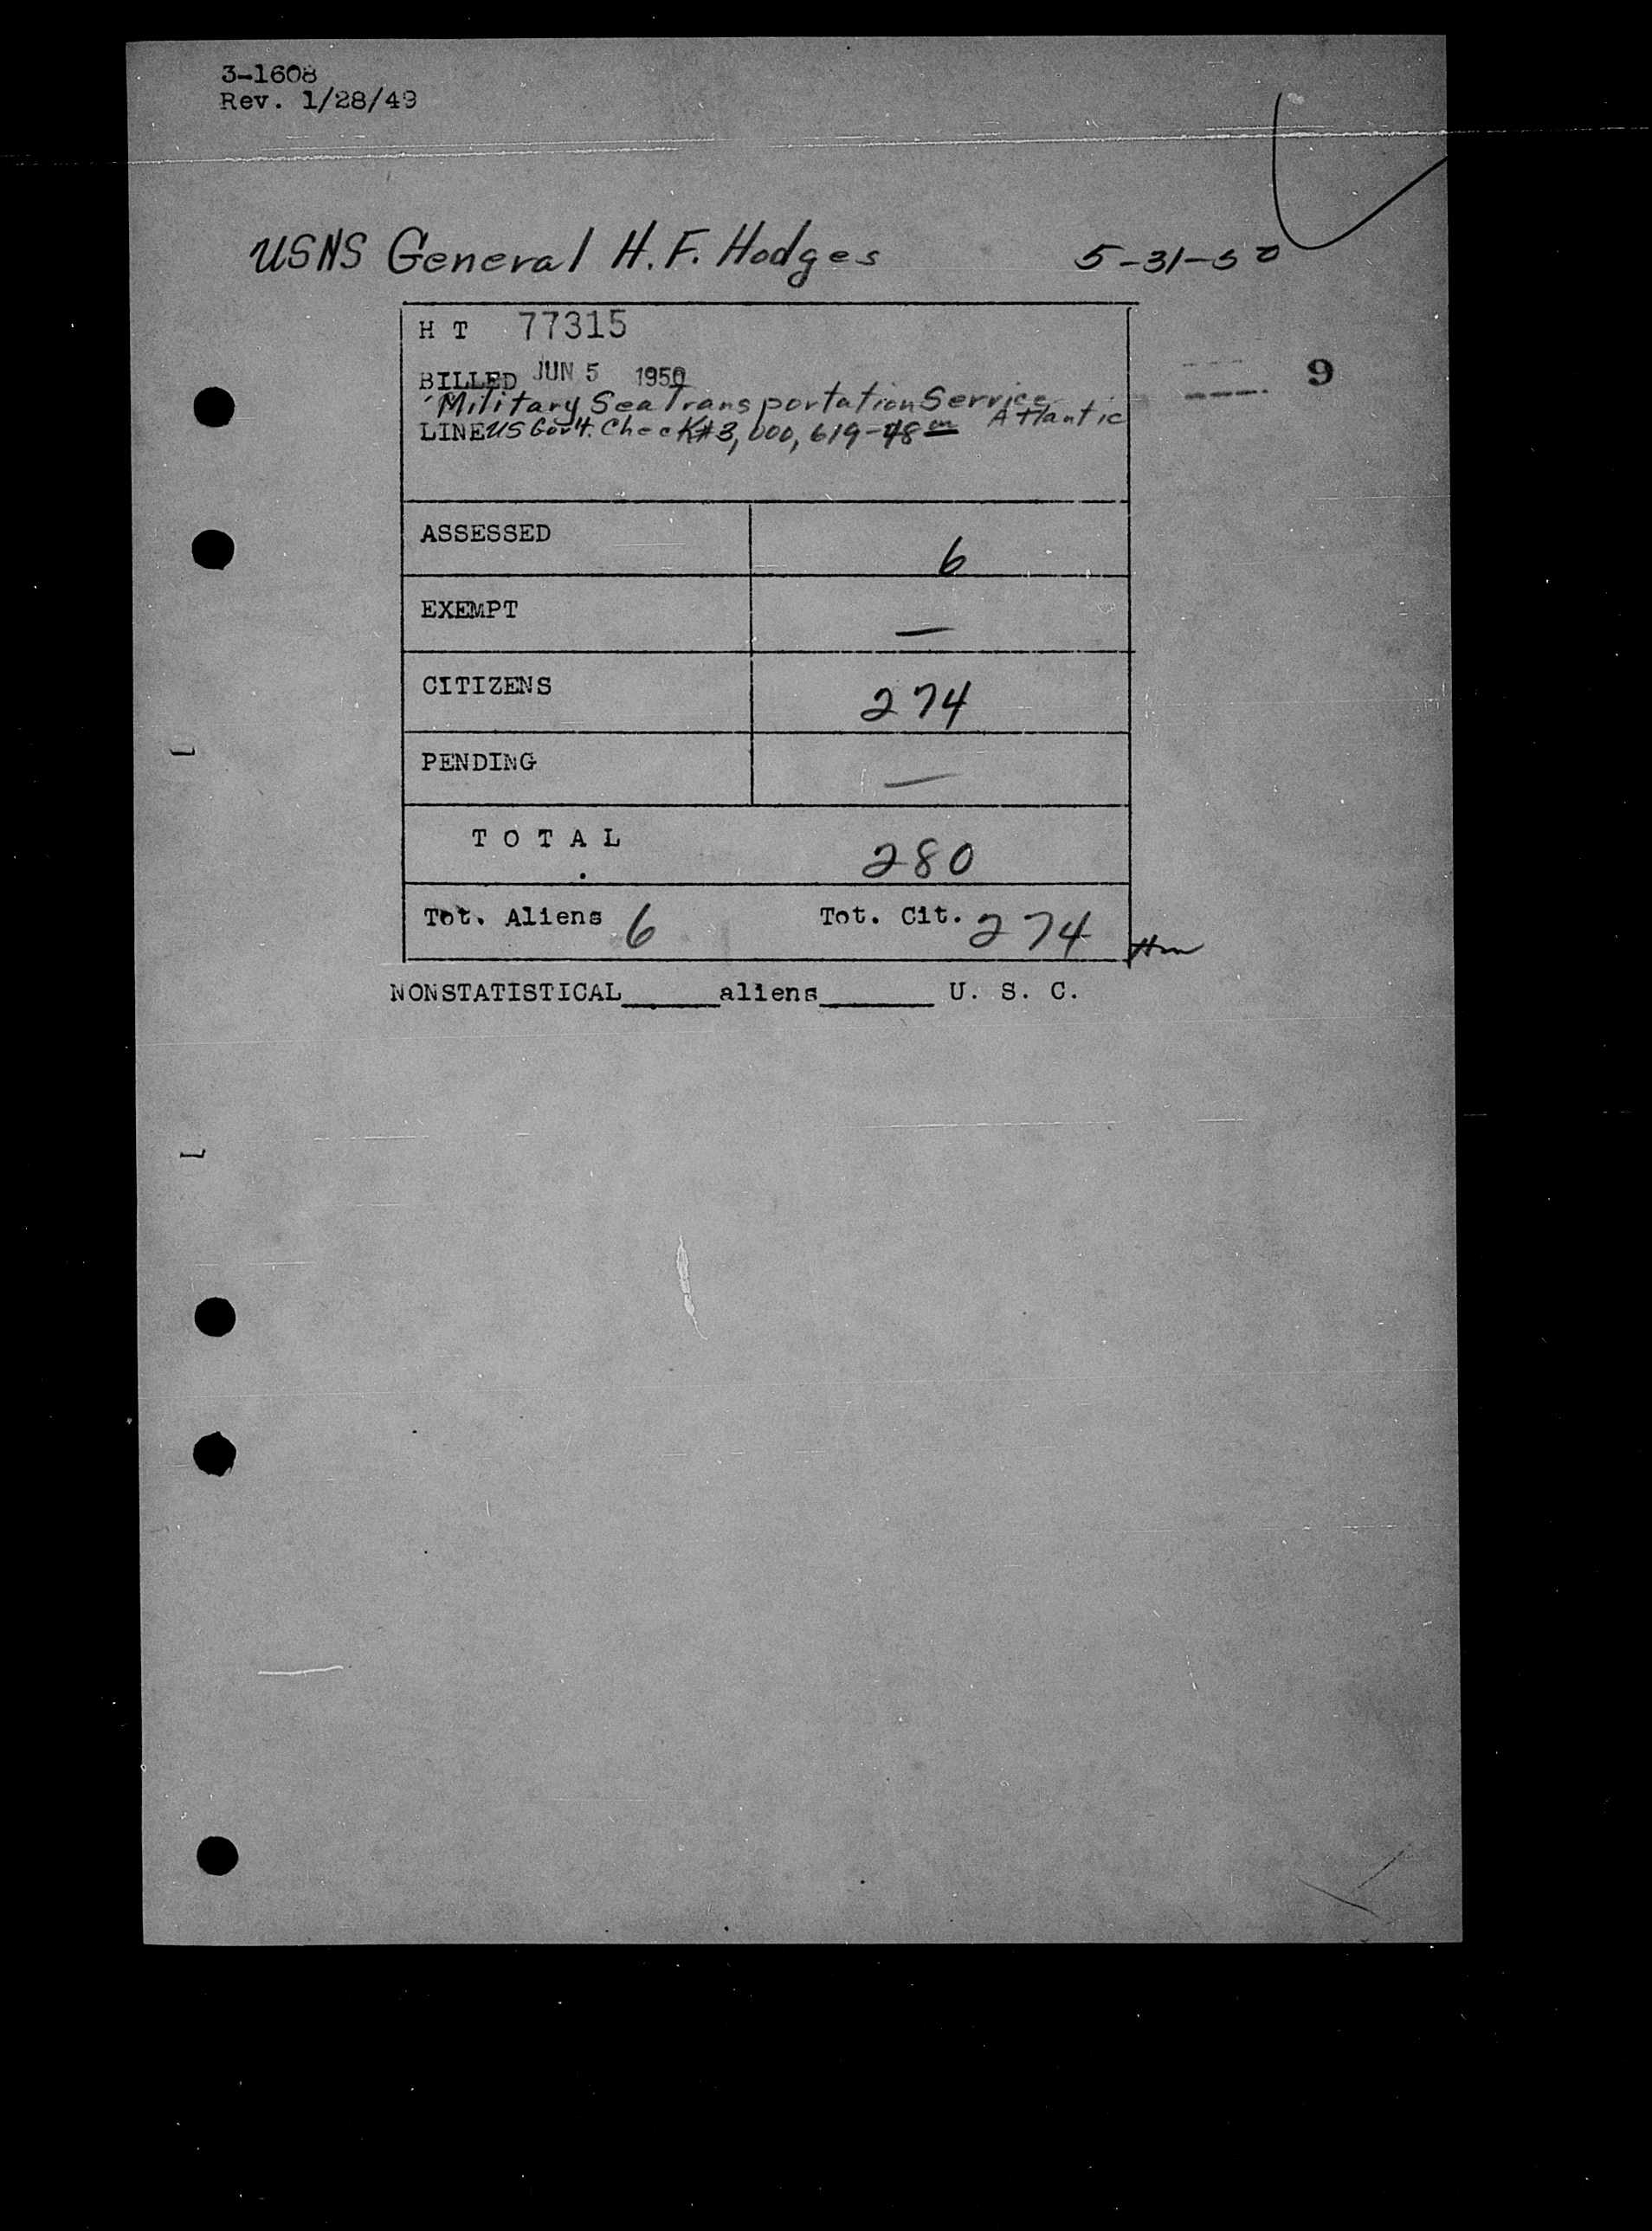 3-1608
Rev. 1/28/49
USNS General H.F. Hodges 5-31-50
H T 77315
BILLED JUN 5 1950
9
Military Sea Transportation Service
Atlantic
LINE US Gov't. Check #3,000,619-48 00
ASSESSED 6
EXEMPT —
CITIZENS 274
PENDING —
T O T A L 280
Tot. Aliens 6 Tot. Cit. 274
NONSTATISTICAL______aliens_______ U. S. C.